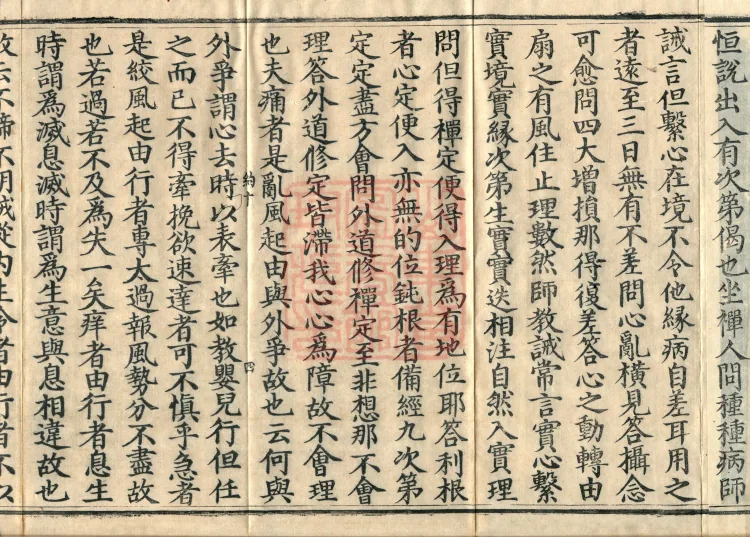 恒說出入有次第偈也坐禪人問種種病師
誡言但繫心在境不令他緣病自差耳用之
者遠至三日無有不差問心亂橫見答攝念
可愈問四大增損那得復差答心之動轉由
扇之有風住止理數然師教誡常言實心繫
實境實緣次第生實實迭相注自然入實理
問但得禪定便得入理為有地位耶答利根
者心定便入亦無的位鈍根者備經九次第
定定盡方會問外道修禪定至非想那不會
理答外道修定皆滯我心心為障故不會理
也夫痛者是亂風起由與外爭故也云何與
外爭謂心去時以表牽也如教嬰兒行但任
之而已不得牽挽欲速達者可不慎乎急者
是絞風起由行者專太過報風勢分不盡故
也若過若不及為失一矣痒者由行者息生
時謂為滅息滅時謂為生意與息相違故也
故云不諦不明誡從內生冷者由行者不以
約十
四